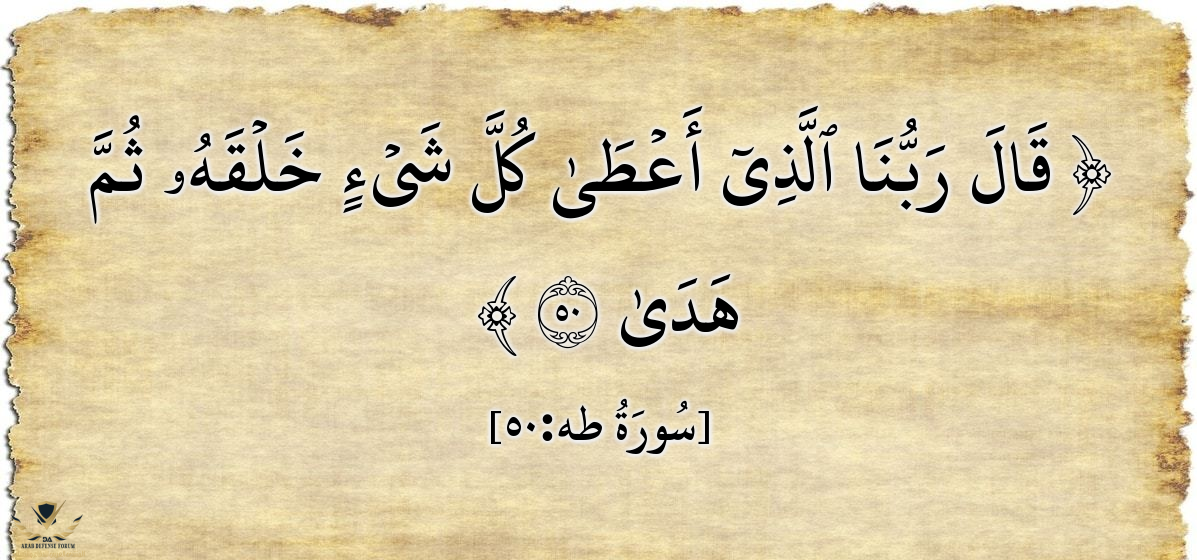 ﴿ قَالَ رَبُّنَا ٱلَّذِىٓ أَعْطَىٰ كُلَّ شَىْءٍ خَلْقَهُۥ ثُمَّ
هَدَىٰ ۝٥٠ ﴾
[سُورَةُ طه:٥٠]
DA
ARAB DEFENSE FORUM